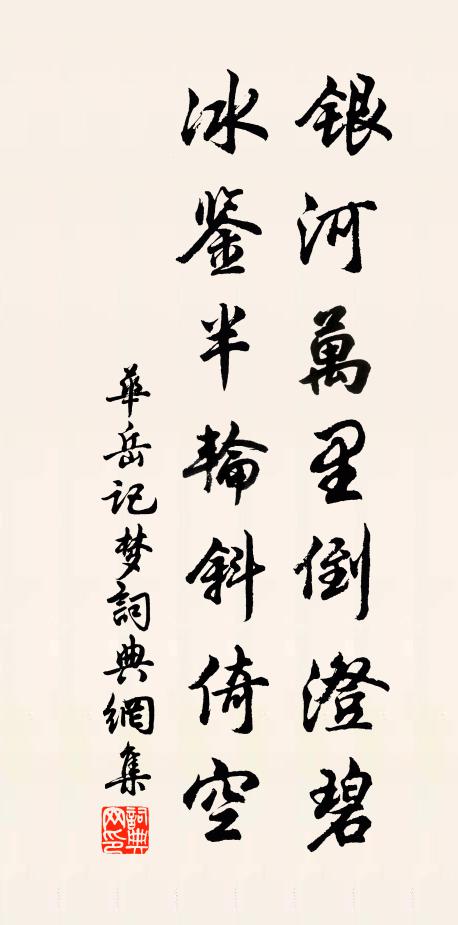 銀河萬里倒澄碧
冰鉴半輪斜倚空
華岳记梦詞典網集
詞典网印